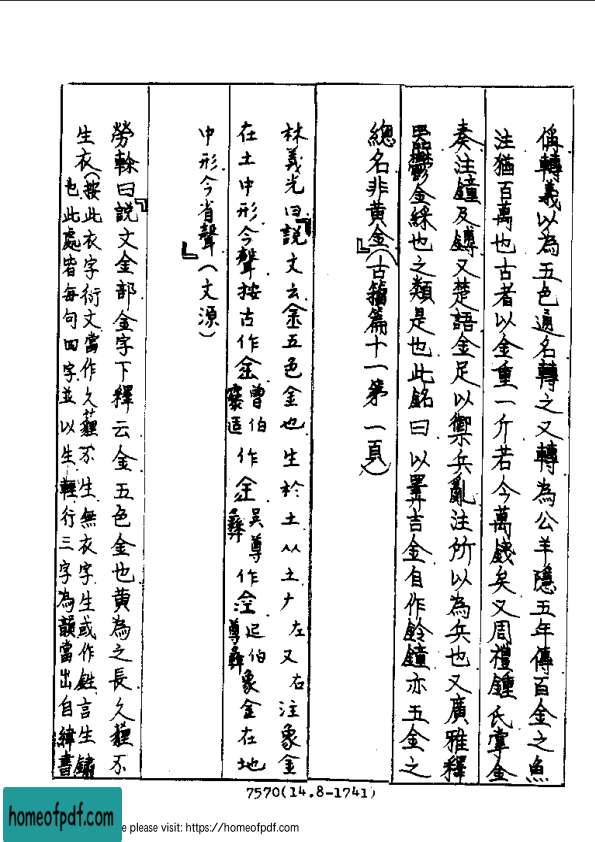 偁轉義以為五色通名轉之又轉為公羊隱五年傳百金之魚
注猶百萬也古者以金重一斤若今萬錢矣又周禮鍾氏掌金
奏注鐘及鎛又楚語金足以禦兵亂注所以為兵也又廣雅釋
器鬱金綵也之類是也此銘曰以罬吉金自作鈴鐘亦五金之
總名非黃金』(古籀篇十一第一頁)
林義光曰『說文云金五色金也生於土从土ナ又注象金
左右
在土中形今聲按古作金曾伯
作金吳尊
彝作
伯
尊彝象金在地
中形今省聲』(文源)
勞榦曰『說文金部金字下釋云金五色金也黃為之長久薶不
生衣(按此衣字衍文當作久薶不生無衣字生或作鉎言生鏽
也此處皆每句四字並以生輕行三字為韻當出自緯書
7570(14.8-1741)
homeofpdf.com
e please visit: https://homeofpdf.com